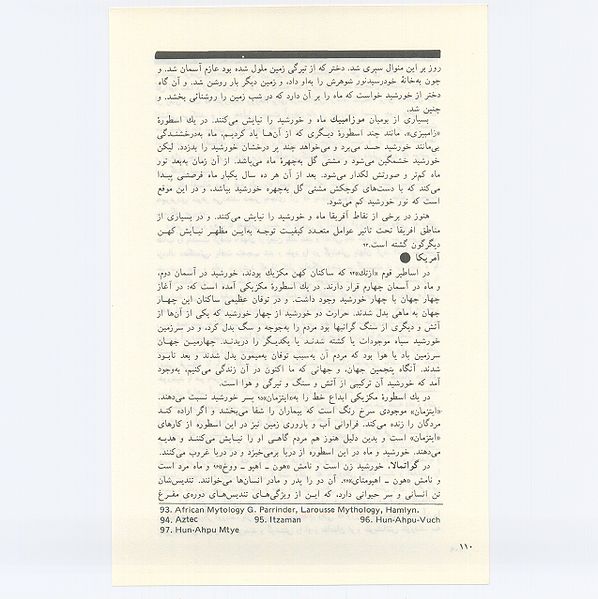 روز بر این منوال سپری شد. دختر که از تیرگی زمین ملول شده بود عازم آسمان شد. و
چون به‌خانهٔ خورد‌رسیدنور شوهرش را به‌او داد، و زمین دیگر بار روشن شد. و آن گاه
دختر از خورشید خواست که ماه را بر آن دارد که در شب زمین را روشنائی بخشد. و
چنین شد.
بسیاری از بومیان موزامبیك ماه و خورشید را نیایش می‌کنند. در یك اسطورهٔ
«زامبیزی»، مانند چند اسطورهٔ دیگری که از آن‌ها یاد کردیم، ماه به‌درخشندگی
بی‌مانند خورشید حسد می‌برد و می‌خواهد چند پر درخشان خورشید را بدزدد. لیکن
خورشید خشمگین می‌شود و مشتی گل به‌چهرهٔ ماه می‌پاشد. از آن زمان به‌بعد نور
ماه کم‌تر و صورتش لکدار می‌شود. بعد از آن هر ده سال یکبار ماه فرصتی پیدا
می‌کند که با دست‌های کوچکش مشتی گل به‌چهره خورشید بپاشد. و در این موقع
است که نور خورشید کم می‌شود.
هنوز در برخی از نقاط آفریقا ماه و خورشید را نیایش می‌کنند. و در بسیاری از
مناطق افریقا تحت تاثیر عوامل متعدد کیفیت توجه به‌این مظهر نیایش کهن
دیگرگون گشته است.۹۳
آمریکا ●
در اساطیر قوم «ازتك»۹۴ که ساکنان کهن مکزیك بودند، خورشید در آسمان دوم،
و ماه در آسمان چهارم قرار دارند. در یك اسطورهٔ مکزیکی آمده است که: در آغاز
چهار جهان با چهار خورشید وجود داشت. و در توفان عظیمی ساکنان این چهار
جهان به ماهی بدل شدند. حرارت دو خورشید از چهار خورشید که یکی از آن‌ها از
آتش و دیگری از سنگ گرانبها بود مردم را به‌جوجه و سگ بدل کرد، و در سرزمین
خورشید سیاه موجودات یا کشته شدند یا یکدیگر را دریدند. چهارمین جهان
سرزمین باد یا هوا بود که مردم آن به‌سبب توفان به‌میمون بدل شدند و بعد نابود
شدند. آنگاه پنجمین جهان، و جهانی که ما اکنون در آن زندگی می‌کنیم، به‌وجود
آمد که خورشید آن ترکیبی از آتش و سنگ و تیرگی و هوا است.
در یك اسطورهٔ مکزیکی ابداع خط را به«ایتزمان»۹۵ پسر خورشید نسبت می‌دهند.
«ایتزمان» موجودی سرخ رنگ است که بیماران را شفا می‌بخشد و اگر اراده کند
مردگان را زنده می‌کند. فراوانی آب و باروری زمین نیز در این اسطوره از کارهای
«ایتزمان» است و بدین دلیل هنوز هم مردم گاهی او را نیایش می‌کنند و هدیه
می‌دهند. خورشید و ماه در این اسطوره از دریا برمی‌خیزد و در دریا غروب می‌کنند.
در گواتمالا، خورشید زن است و نامش «هون ـ اهپو ـ ووخ»۹۶ و ماه مرد است
و نامش «هون ـ اهپومتای»۹۷. آن دو را پدر و مادر انسان‌ها می‌خوانند. تندیس‌شان
تن انسانی و سر حیوانی دارد، که این از ویژگی‌های تندیس‌های دوره‌ی مفرغ
93. African Mytology G. Parrinder, Larousse Mythology, Hamlyn.
94. Aztec 95. Itzaman 96. Hun-Ahpu-Vuch
97. Hun-Ahpu Mtye
۱۱۰